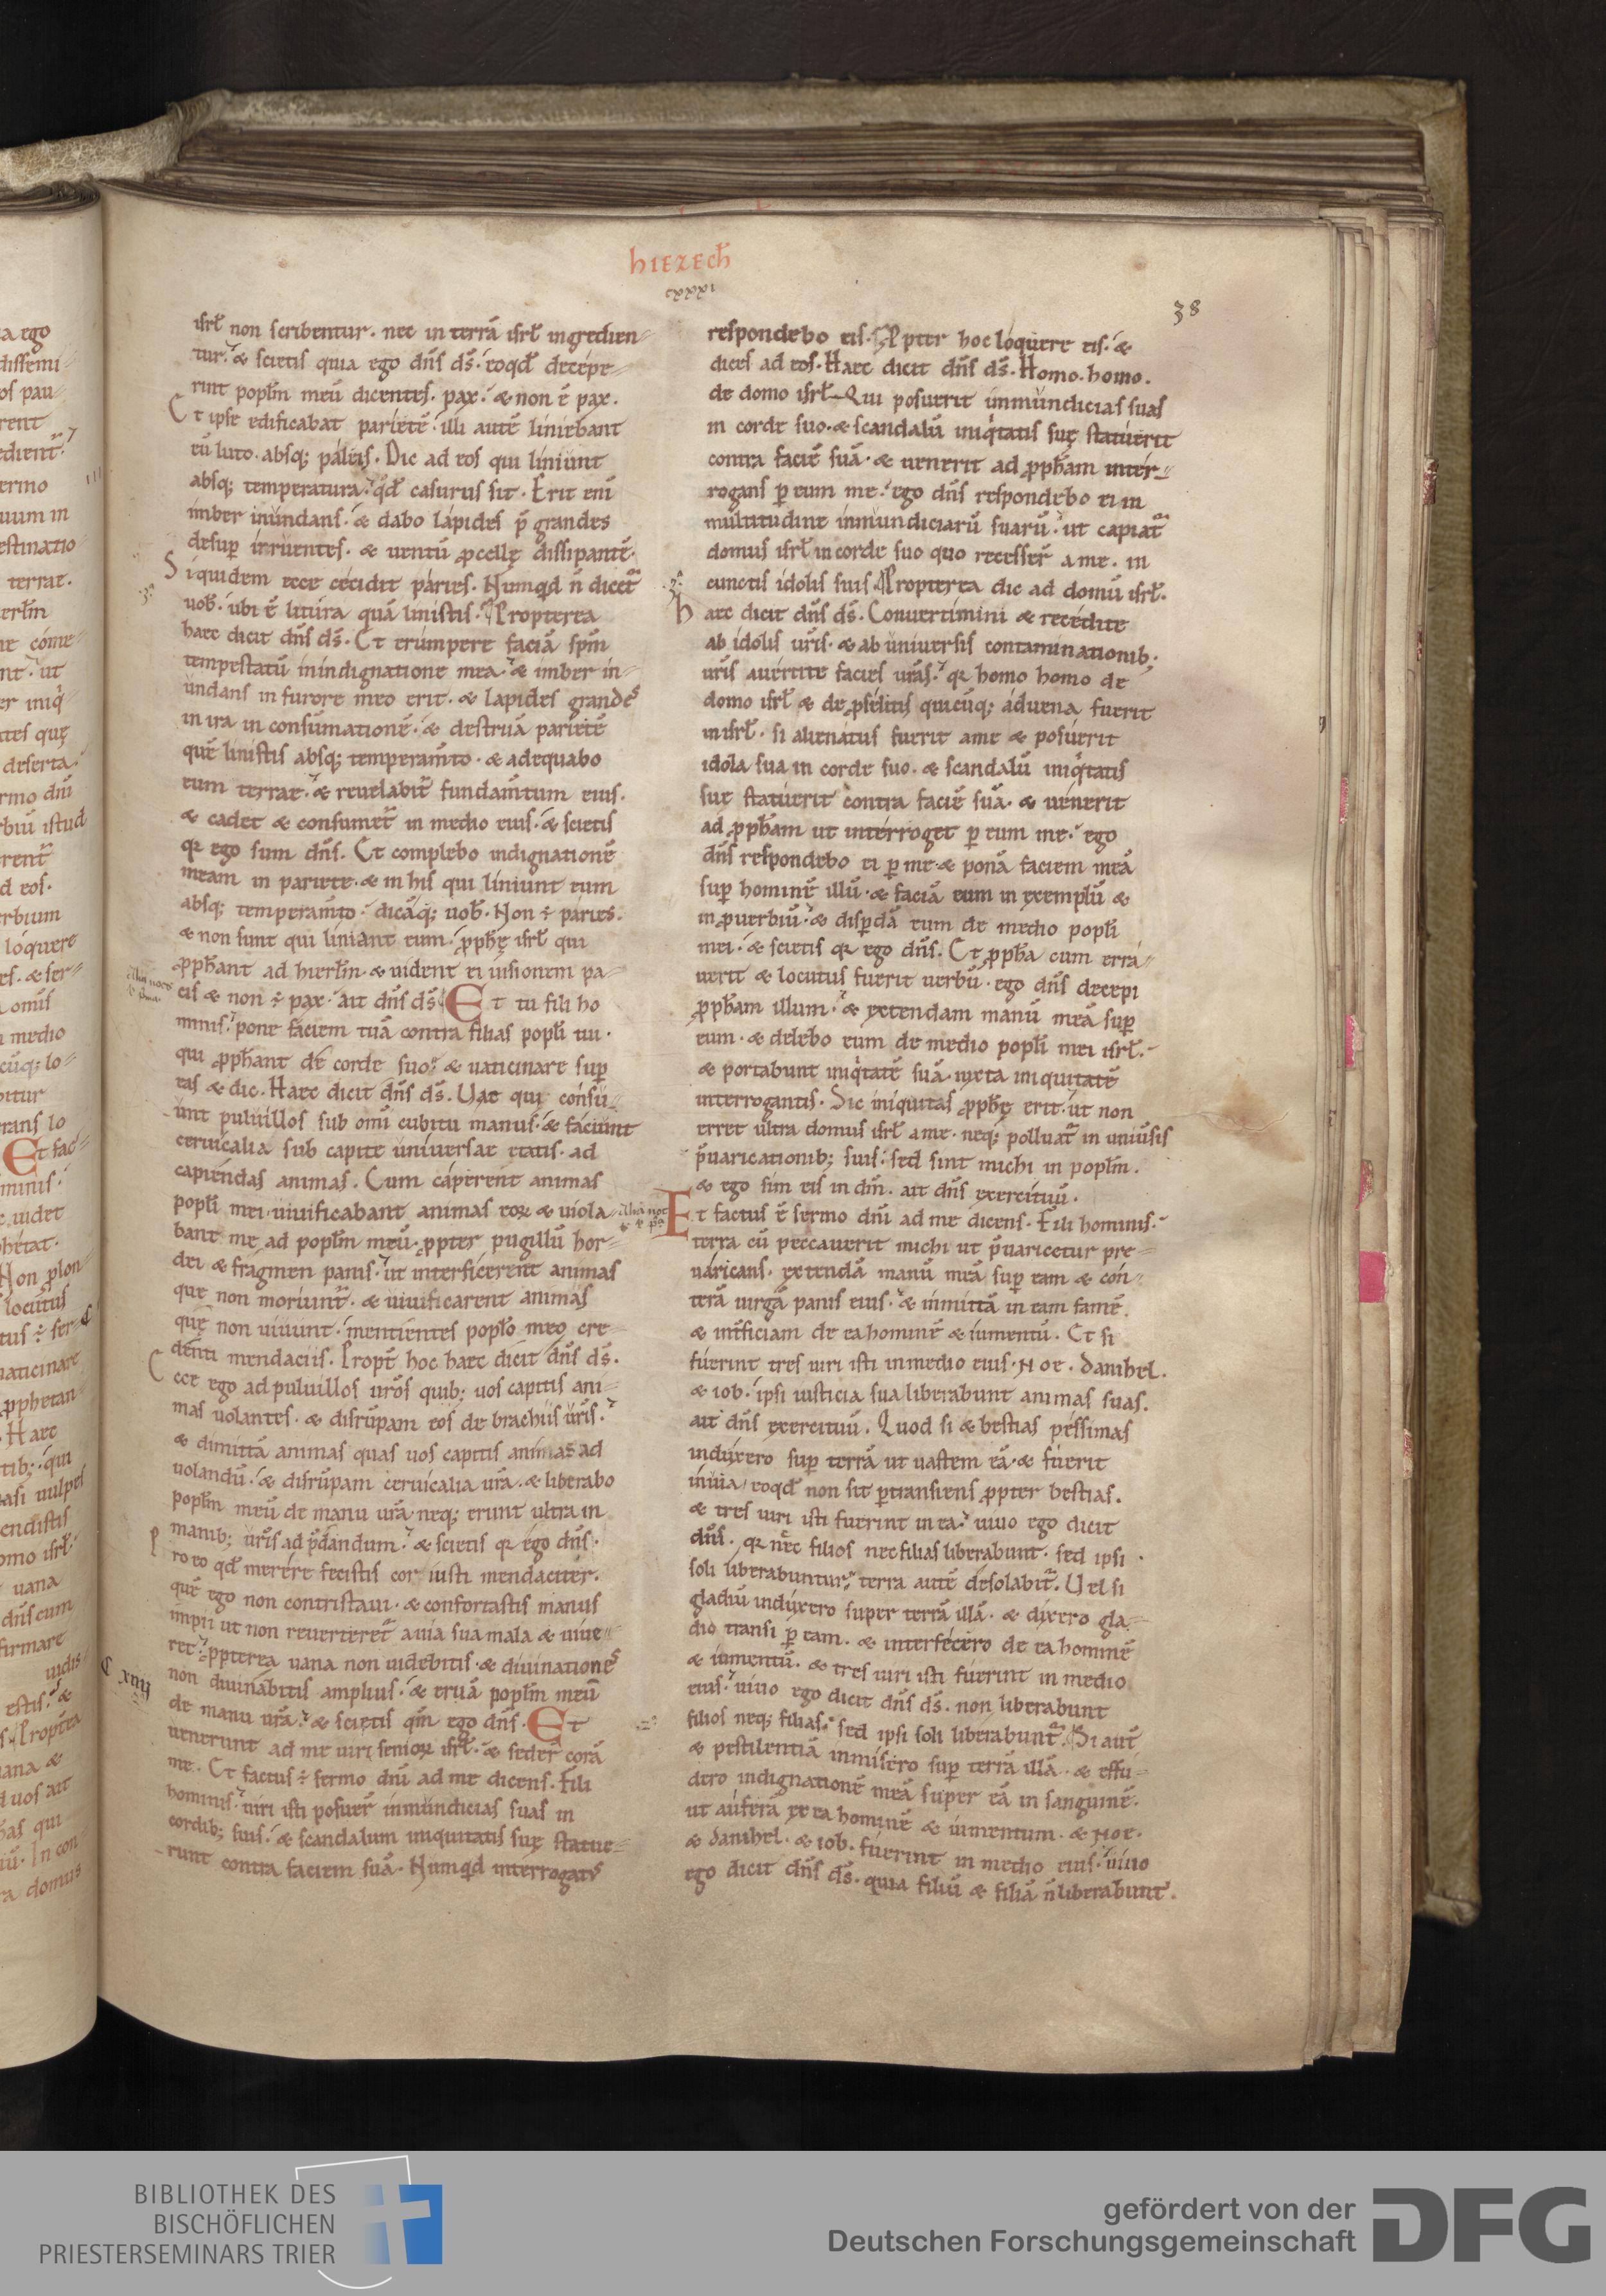 hIEZECħ
cxxxi
38
isrł non scribentur. nec in terrā isrł ingredien
tur. & scietis quia ego dn̄s ds̄. eoqđ decepe
rint popłm meū dicentes. pax. & non ē pax.
Et ipse edificabat parietē. illi autē liniebant
eū luto. absq; paleis. Dic ad eos qui liniunt
absq; temperatura. qđ casurus sit. Erit eni
imber inundans. & dabo lapides p̄ grandes
desup irruentes. & uentū procellę dissipantē.
Siquidem ecce cecidit paries. Numqđ n̄ dicet̄
uob̄. ubi ē litura quā linistis. Propterea
haec dicit dn̄s ds̄. Et erumpere faciā sp̄m
tempestatū inindignatione mea. & imber in
undans in furore meo erit. & lapides grandes
in ira in consūmationē. & destruā parietē
quē linistis absq; temperam̄to. & adequabo
eum terrae. & reuelabit̄ fundam̄tum eius.
& cadet & consumet̄ in medio eius. & scietis
qr ego sum dn̄s. Et complebo indignationē
meam in pariete. & in his qui liniunt eum
absq; temperam̄to. dicāq; uob̄. Non ÷ paries.
& non sunt qui liniant eum. ꝓpħę isrł qui
ꝓpħant ad hierłm. & uident ei uisionem pa
cis & non ÷ pax. ait dn̄s ds̄. Et tu fili ho
minis. pone faciem tuā contra filias popłi tui.
qui ꝓpħant de corde suo. & uaticinare sup
eas & dic. Haec dicit dn̄s ds̄. Uae qui consu
unt puluillos sub omi cubitu manus. & faciunt
ceruicalia sub capite uniuersae etatis. ad
capiendas animas. Cum caperent animas
popłi mei. uiuificabant animas eoꝝ & uiola
bant me ad popłm meū. ꝓpter pugillū hor
dei & fragmen panis. ut interficerent animas
que non moriunt̄. & uiuificarent animas
quę non uiuunt. mentientes popło meo cre
denti mendaciis. Propt̄ hoc haec dicit dn̄s ds̄.
Ecce ego ad puluillos ur̄os quib; uos capitis ani
mas uolantes. & disrūpam eos de brachiis ur̄is.
& dimittā animas quas uos capitis animas ad
uolandū. & disrūpam ceruicalia ur̄a. & liberabo
popłm meū de manu ur̄a. neq; erunt ultra in
manib; ur̄is ad p̄dandum. & scietis qr ego dn̄s.
Pro eo qđ merere fecistis cor iusti mendaciter.
quē ego non contristaui. & confortastis manus
impii ut non reuerteret̄ a uia sua mala & uiue
ret. ꝓpterea uana non uidebitis. & diuinationes
non diuinabitis amplius. & eruā popłm meū
de manu ur̄a. & scietis qm̄ ego dn̄s. Et
uenerunt ad me uiri senioꝝ isrł. & seder̄ corā
me. Et factus ÷ sermo dn̄i ad me dicens. Fili
hominis. uiri isti posuer̄ inmundicias suas in
cordib; suis. & scandalum iniquitatis suę statue
runt contra faciem suā. Numqđ interrogatus
respondebo eis. Ꝓpter hoc loquere eis. &
dices ad eos. Haec dicit dn̄s ds̄. Homo. homo.
de domo isrł. Qui posuerit inmundicias suas
in corde suo. & scandalū iniqtatis suę statuerit
contra faciē suā. & uenerit ad ꝓpħam inter
rogans ꝑ eum me. ego dn̄s respondebo ei in
multitudine inmundiciarū suarū. ut capiat̄
domus isrł in corde suo quo recesser̄ a me. in
cunctis idolis suis. Propterea dic ad domū isrł.
haec dicit dn̄s ds̄. Conuertimini & recedite
ab idolis ur̄is. & ab uniuersis contaminationib;
ur̄is auertite facies ur̄as. qr homo homo de
domo isrł & de ꝓselitis quicūq; aduena fuerit
in isrł. si alienatus fuerit a me & posuerit
idola sua in corde suo. & scandalū iniqtatis
sue statuerit contra faciē suā. & uenerit
ad ꝓpħam ut interroget ꝑ eum me. ego
dn̄s respondebo ei ꝑ me. & ponā faciem meā
sup hominē illū. & faciā eum in exemplū &
in ꝓuerbiū. & disꝑdā eum de medio popłi
mei. & scietis qr ego dn̄s. Et ꝓpħa cum erra
uerit & locutus fuerit uerbū. ego dn̄s decepi
ꝓpħam illum. & extendam manū meā sup
eum. & delebo eum de medio popłi mei isrł.
& portabunt iniqtatē suā. iuxta iniquitatē
interrogantis. Sic iniquitas ꝓpħę erit. ut non
erret ultra domus isrł a me. neq; polluat̄ in uniuersis
p̄uaricationib; suis. sed sint michi in popłm.
& ego sim eis in dm̄. ait dn̄s exercituū.
Et factus ē sermo dn̄i ad me dicens. Fili hominis.
terra cū peccauerit michi ut p̄uaricetur pre
uaricans. extendā manū meā sup eam & con
terā uirgā panis eius. & inmittā in eam famē.
& int̄ficiam de ea hominē & iumentū. Et si
fuerint tres uiri isti inmedio eius. Noe. danihel.
& iob. ipsi iusticia sua liberabunt animas suas.
ait dn̄s exercituū. Quod si & bestias pessimas
induxero sup terrā ut uastem eā. & fuerit
inuia. eoqđ non sit ꝑtransiens ꝓpter bestias.
& tres uiri isti fuerint in ea. uiuo ego dicit
dn̄s. qr nec filios nec filias liberabunt. sed ipsi
soli liberabuntur. terra autē desolabit̄. Uel si
gladiū induxero super terrā illā. & dixero gla
dio transi ꝑ eam. & interfecero de ea hominē
& iumentū. & tres uiri isti fuerint in medio
eius. uiuo ego dicit dn̄s ds̄. non liberabunt
filios neq; filias. sed ipsi soli liberabunt̄. Si aut̄
& pestilentiā inmisero sup terrā illā. & effu
dero indignationē meā super eā in sanguinē.
ut auferā ex ea hominē & iumentum. & Noe.
& danihel. & iob. fuerint in medio eius. uiuo
ego dicit dn̄s ds̄. quia filiū & filiā n̄ liberabunt.
C xiiij
BIBLIOTHEK DES
BISCHÖFLICHEN
PRIESTERSEMINARS TRIER
gefördert von der
Deutschen Forschungsgemeinschaft
DFG